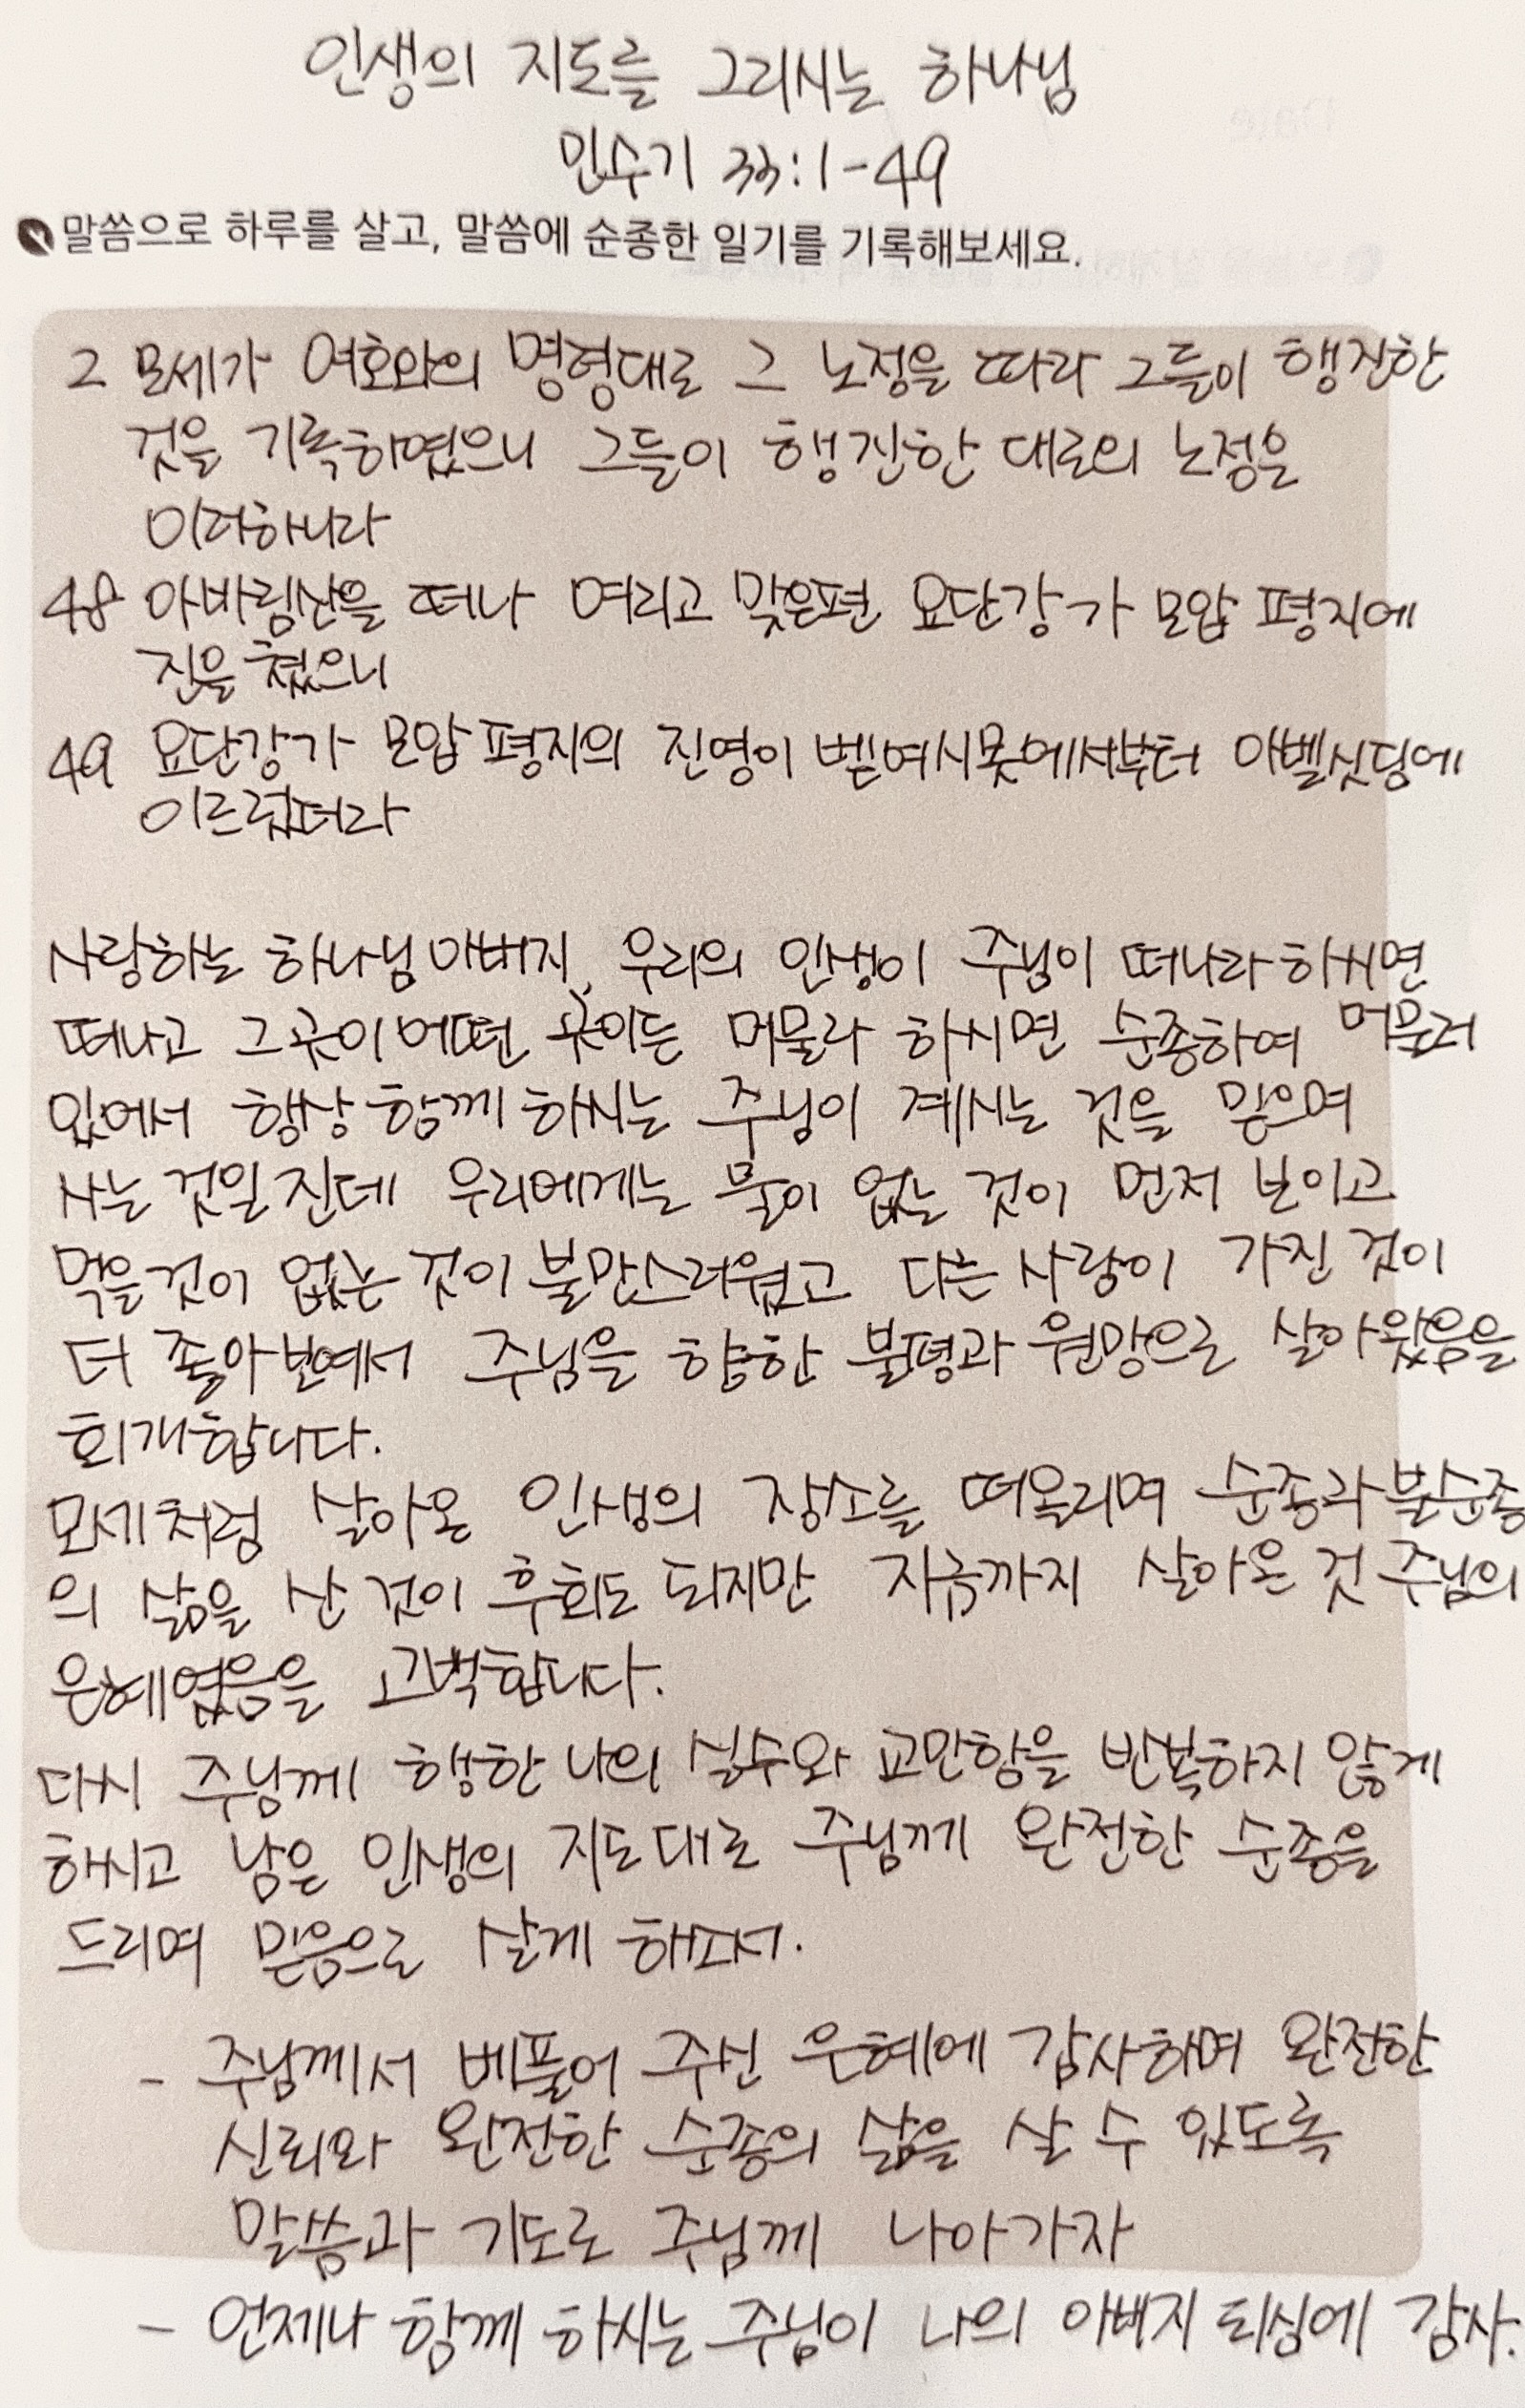 인생의 지도를 그리시는 하나님
민수기 33:1-49
말씀으로 하루를 살고, 말씀에 순종한 일기를 기록해보세요.
2 모세가 여호와의 명령대로 그 노정을 따라 그들이 행진한
것을 기록하였으니 그들이 행진한 대로의 노정은
이러하니라
48 아바림산을 떠나 여리고 맞은편 요단강 가 모압 평지에
진을 쳤으니
49 요단강가 모압 평지의 진영이 벧여시못에서부터 아벨싯딤에
이르렀더라
사랑하는 하나님 아버지, 우리의 인생이 주님이 떠나라 하시면
떠나고 그곳이 어떤 곳이든 머물라 하시면 순종하여 머물러
있어서 항상 함께 하시는 주님이 계시는 것을 믿으며
사는 것일진데 우리에게는 물이 없는 것이 먼저 보이고
먹을것이 없는 것이 불만스러웠고 다른 사람이 가진 것이
더 좋아보여서 주님을 향한 불평과 원망으로 살아왔음을
회개합니다.
모세처럼 살아온 인생의 장소를 떠올리며 순종과 불순종
의 삶을 산 것이 후회도 되지만 지금까지 살아온 것 주님의
은혜였음을 고백합니다.
다시 주님께 행한 나의 실수와 교만함을 반복하지 않게
하시고 남은 인생의 지도대로 주님께 완전한 순종을
드리며 믿음으로 살게 하소서.
- 주님께서 베풀어 주신 은혜에 감사하며 완전한
신뢰와 완전한 순종의 삶을 살 수 있도록
말씀과 기도로 주님께 나아가자
- 언제나 함께 하시는 주님이 나의 아버지 되심에 감사.